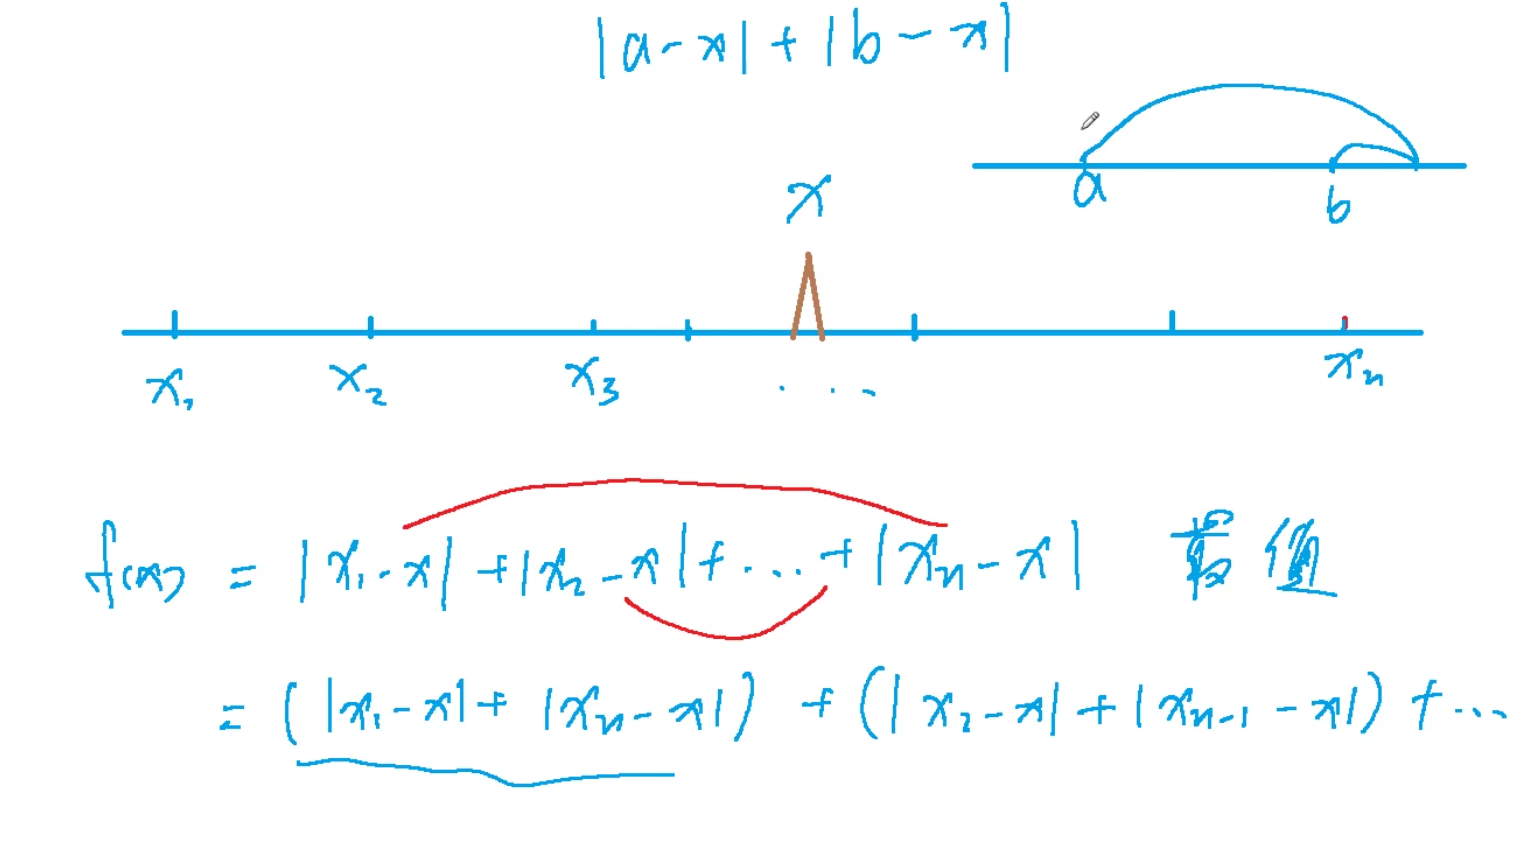 |a-x|+|b-x|
a b
x
x₁ x₂ x₃ ... xₙ
f(x) = |x₁-x|+|x₂-x|+...+|xₙ-x| 值
= (|x₁-x|+|xₙ-x|)+(|x₂-x|+|xₙ₋₁-x|)+...